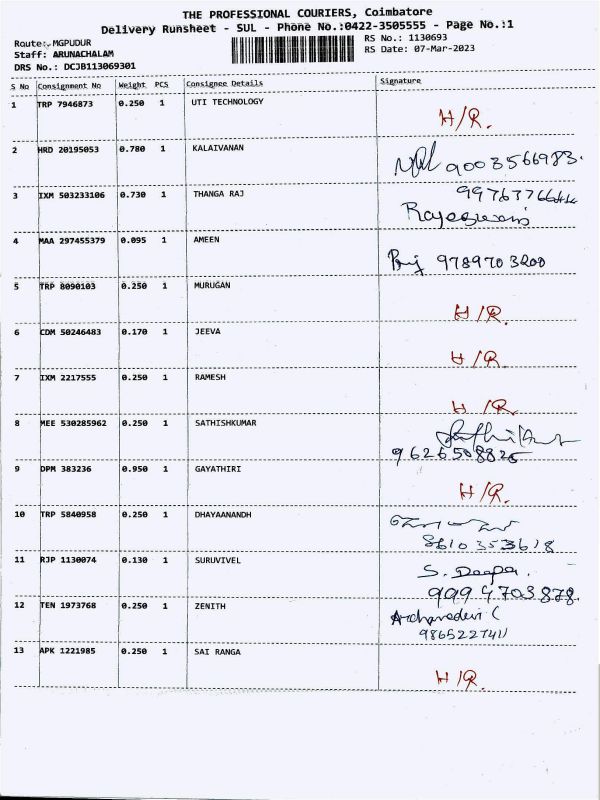 THE PROFESSIONAL COURIERS, Coimbatore
Delivery Runsheet - SUL - Phone No.:0422-3505555 - Page No.:1
Route:-MGPUDUR RS No.: 1130693
Staff: ARUNACHALAM RS Date: 07-Mar-2023
DRS No.: DCJB113069301
S No Consignment No Weight PCS Consignee Details Signature
1 TRP 7946873 0.250 1 UTI TECHNOLOGY
H/R.
2 HRD 20195053 0.780 1 KALAIVANAN
9003566983.
3 IXM 503233106 0.730 1 THANGA RAJ
Rajeswari
4 MAA 297455379 0.095 1 AMEEN
9789703200
5 TRP 8090103 0.250 1 MURUGAN
H/R.
6 CDM 50246483 0.170 1 JEEVA
H/R.
7 IXM 2217555 0.250 1 RAMESH
H/R.
8 MEE 530285962 0.250 1 SATHISHKUMAR
9626508825
9 DPM 383236 0.950 1 GAYATHIRI
H/R.
10 TRP 5840958 0.250 1 DHAYAANANDH
8610353618
11 RJP 1130074 0.130 1 SURUVIVEL
S. Deepa.
9994703878.
12 TEN 1973768 0.250 1 ZENITH
Archanadevi C
9865227411
13 APK 1221985 0.250 1 SAI RANGA
H/R.